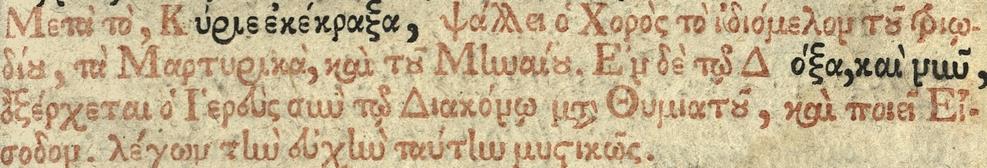 Μετὰ τὸ, Κύριε ἐκέκραξα, ψάλλει ὁ Χορὸς τὸ ἰδιόμελον τοῦ Τριῳ-
δίου, τὰ Μαρτυρικὰ, καὶ τοῦ Μηναίου. Ἐν δὲ τῷ Δόξα, καὶ νῦν,
ἐξέρχεται ὁ Ἱερεὺς σὺν τῷ Διακόνῳ μετὰ Θυμιατοῦ, καὶ ποιεῖ Εἴ-
σοδον. λέγων τὴν εὐχὴν ταύτην μυστικῶς.